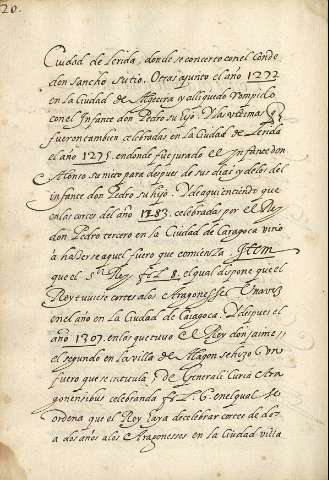 20.
Ciudad de Lerida, donde se concerto con el Conde
don Sancho su tio. Otras ayunto el año 1272
en la Ciudad de Algecira y alli quedo rompido
con el Infante don Pedro su hijo. Y las ultimas
fueron tambien celebradas en la Ciudad de Lerida
el año 1275. en donde fue jurado el Infante don
Alonso su nieto para despues de sus dias y de los del
infante don Pedro su hijo. Y de aqui entiendo que
en las cortes del año 1283. celebradas por el Rey
don Pedro tercero en la Ciudad de Caragoca vino
a hazerse aquel fuero que comienca Item
que el Sr. Rey fol. 8. el qual dispone que el
Rey tuviese cortes a los Aragoneses Una vez
en el año en la Ciudad de Caragoca. Y despues el
año 1307. en las que tuvo el Rey don Jaime
el segundo en la villa de Alagon se hizo Un
fuero que se intitula, de Generali Curia Ara
gonensibus celebranda fol. 6. en el qual se
ordena que el Rey haya de celebrar cortes de dos
a dos años a los Aragoneses en la Ciudad villa